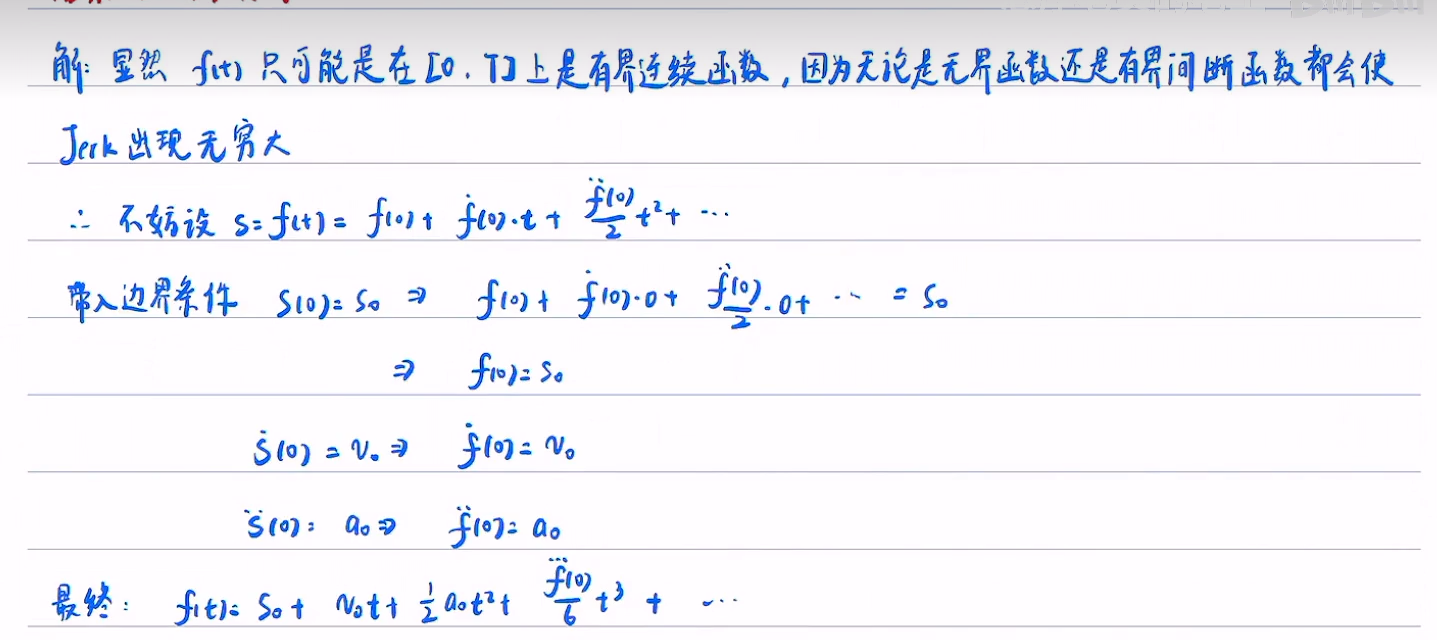 解: 显然 f(t) 只可能是在 [0, T] 上是有界连续函数, 因为无论是无界函数还是有界间断函数都会使
Jerk 出现无穷大
∴ 不妨设 s = f(t) = f(0) + ḟ(0)·t + f̈(0)/2 t² + ···
带入边界条件 S(0) = S₀ ⇒ f(0) + ḟ(0)·0 + f̈(0)/2 ·0 + ··· = S₀
⇒ f(0) = S₀
ṡ(0) = v₀ ⇒ ḟ(0) = v₀
s̈(0) = a₀ ⇒ f̈(0) = a₀
最终: f(t) = S₀ + v₀t + 1/2 a₀t² + f⃛(0)/6 t³ + ···